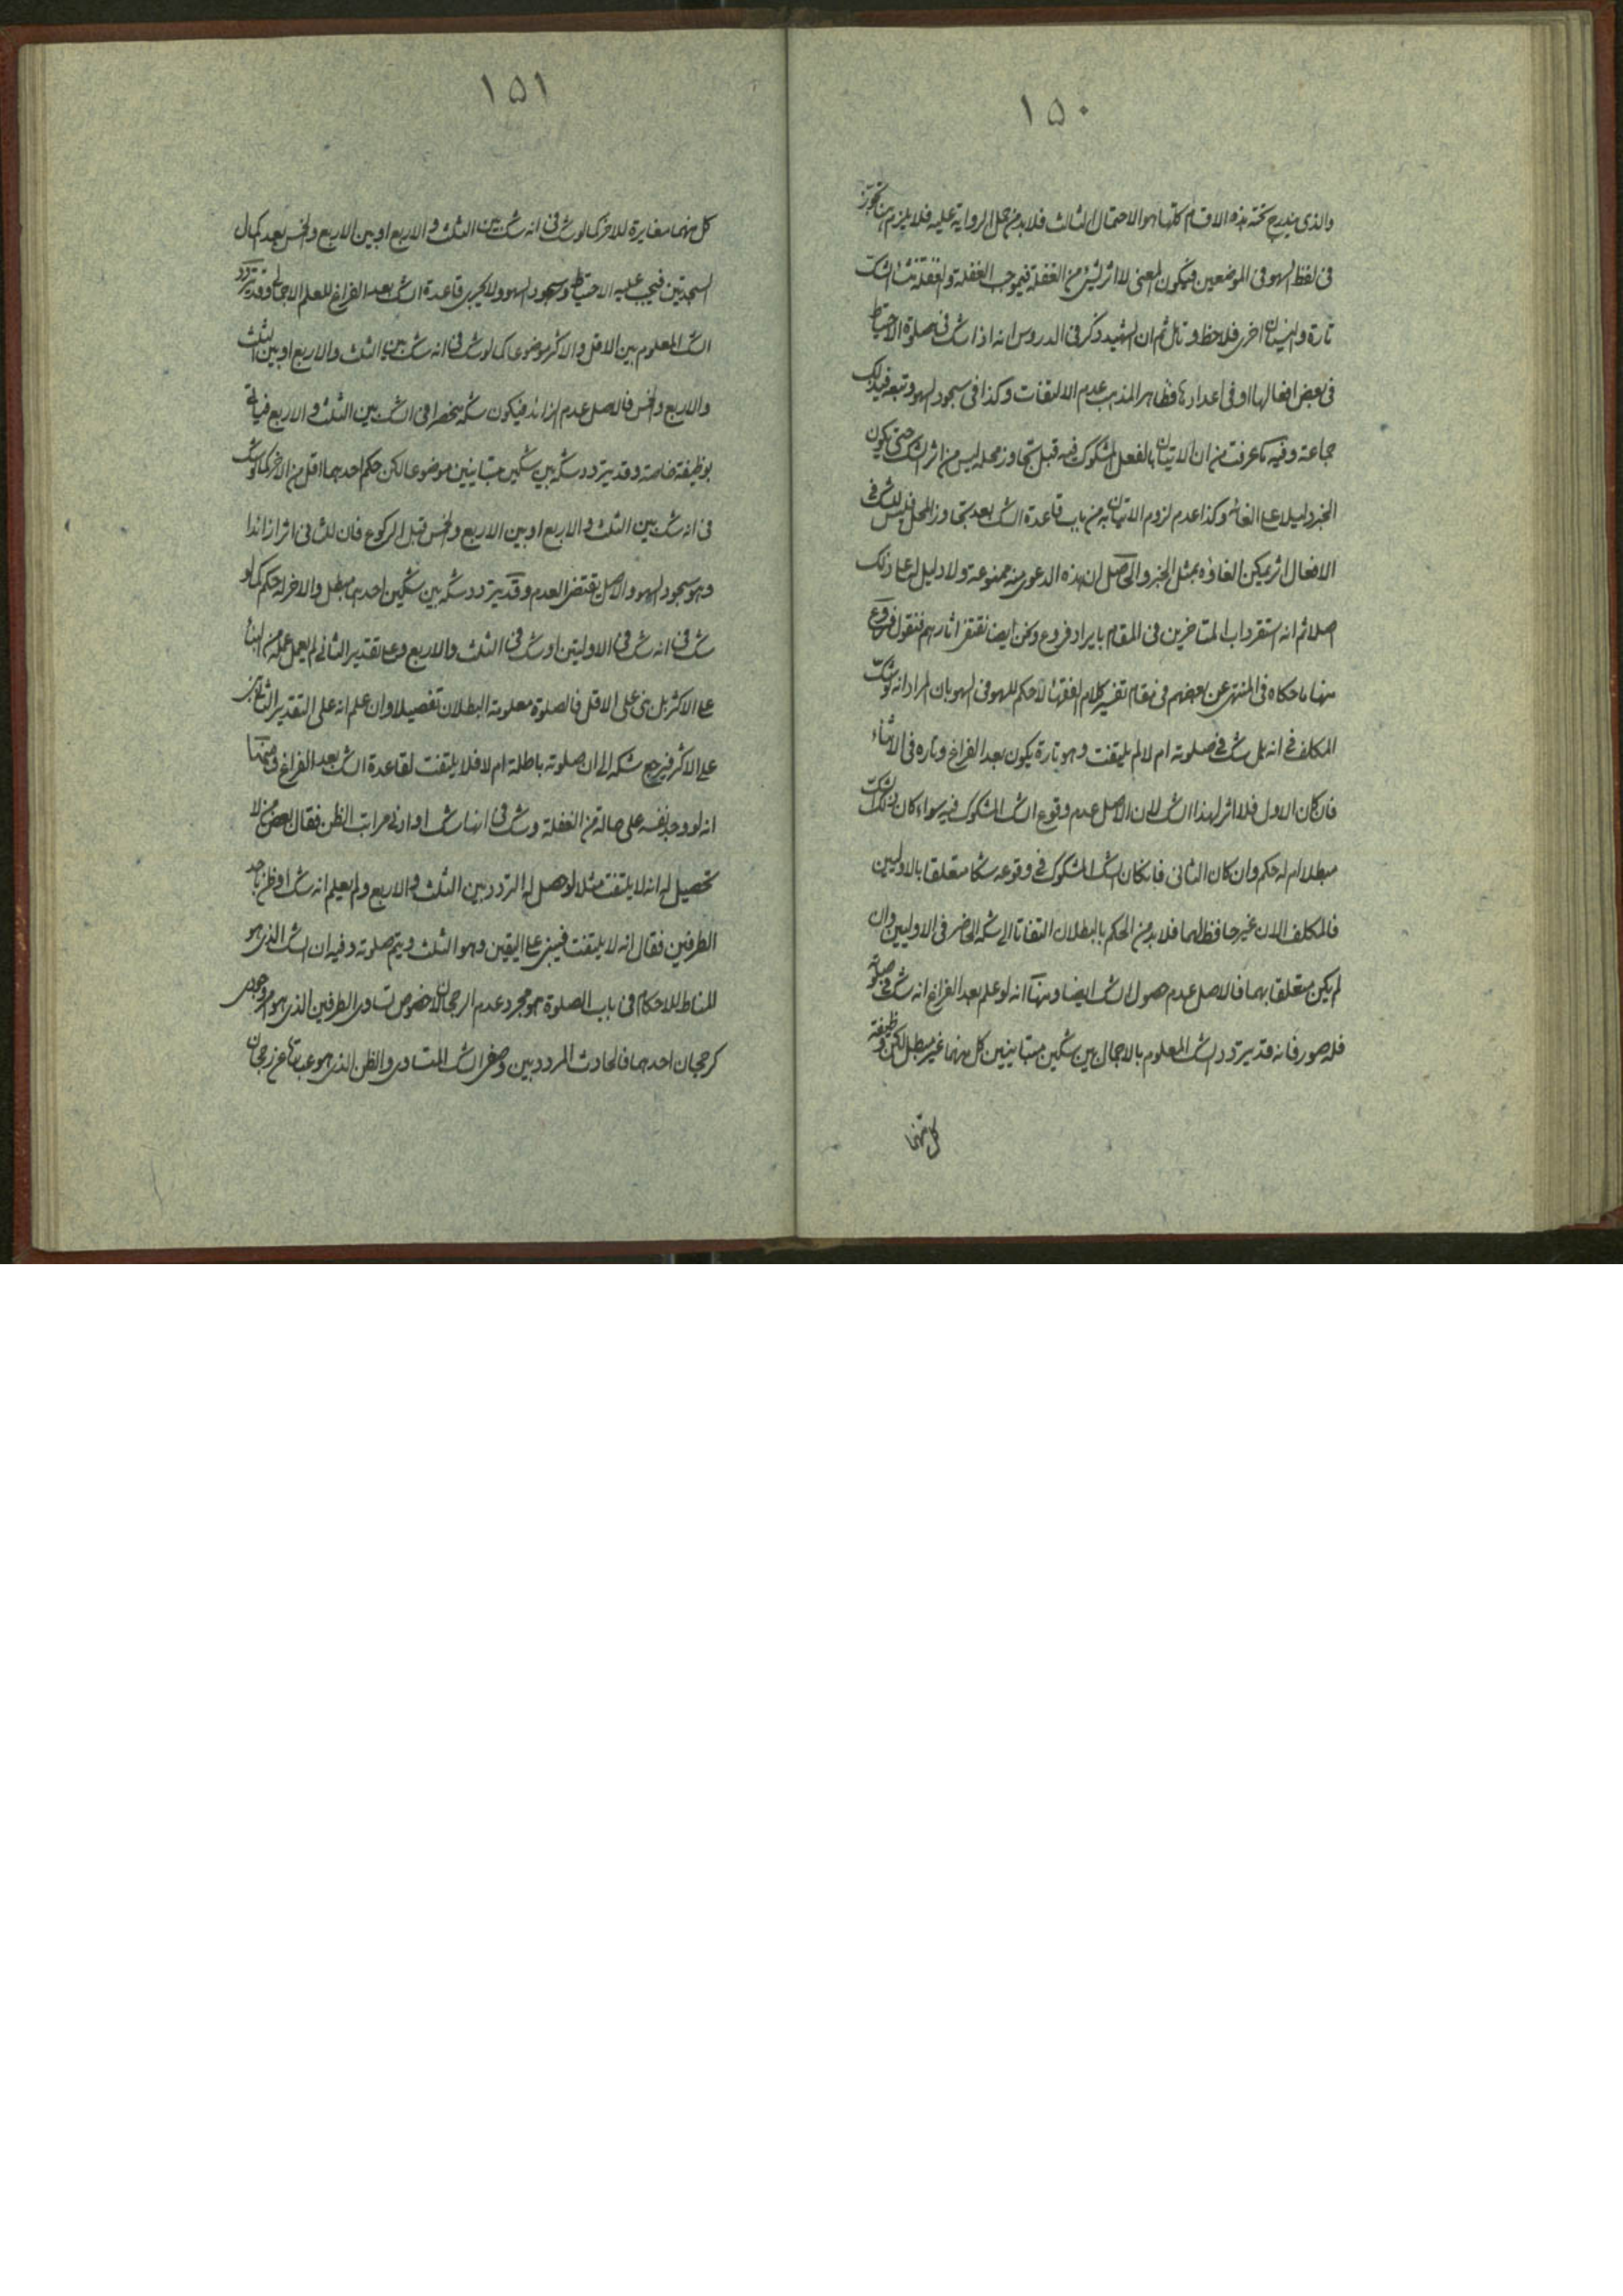 ١٥٠
والذى يندرج تحته هذه الاقسام كلها هو الاحتمال الثالث فلابد من حمل الرواية عليه فلا يلزم من تجوز
فى لفظ السهو فى الموضعين فيكون المعنى لا اثر لشئ من الغفلة فيموجب الغفلة والغفلة منشأ الشك
تارة والنسيان اخرى فلاحظ وتامل ثم ان الشهيد ذكر فى الدروس انه اذا شك فى صلوة الاحتياط
فى بعض افعالها او فى اعدادها فظاهر المذهب عدم الالتفات وكذا فى سجود السهو وتبعه فى ذلك
جماعة وفيه ما عرفت من ان الاتيان بالفعل المشكوك فيه قبل تجاوز محله ليس من اثر الشك حتى يكون
الخبر دليلا على الغائه وكذا عدم لزوم الاتيان به من باب قاعدة الشك بعد تجاوز المحل فليس للشك فى
الافعال اثر يمكن الغاؤه بمثل الخبر والحاصل ان هذه الدعوى منه ممنوعة ولا دليل لنا على ذلك
اصلا ثم انه استقر داب المتاخرين فى المقام بايراد فروع ونحن ايضا نقتفى اثارهم فنقول فروع
منها ما حكاه فى المنتهى عن بعضهم فى مقام تفسير كلام الفقهاء لا حكم للسهو فى السهو بان المراد انه لو شك
المكلف فى انه هل شك فى صلوته ام لا لم يلتفت وهو تارة يكون بعد الفراغ وتارة فى الاثناء
فان كان الاول فلا اثر لهذا الشك لان الاصل عدم وقوع الشك المشكوك فيه سواء كان ذلك الشك
مبطلا ام له حكم وان كان الثانى فان كان الشك المشكوك فى وقوعه شكا متعلقا بالاوليين
فالمكلف الان غير حافظ لهما فلابد من الحكم بالبطلان التفاتا الى شكه الحاضر فى الاوليين وان
لم يكن متعلقا بهما فالاصل عدم حصول الشك ايضا ومنها انه لو علم بعد الفراغ انه شك فى صلوته
فله صور فانه قد يتردد الشك المعلوم بالاجمال بين شكين متباينين كل منهما غير مبطل لكن وظيفة
كل منهما
١٥١
كل منهما مغايرة للاخر كما لو شك فى انه شك بين الثلث والاربع او بين الاربع والخمس بعد كمال
السجدتين فيجب عليه الاحتياط وسجود السهو ولا يجرى قاعدة الشك بعد الفراغ للعلم الاجمالى وقد يتردد
الشك المعلوم بين الاقل والاكثر موضوعا كما لو شك فى انه شك بين الثلث والاربع او بين الثلث
والاربع والخمس فالاصل عدم الزائد فيكون شكه منحصرا فى الشك بين الثلث والاربع فياتى
بوظيفة خاصة وقد يتردد شكه بين شكين متباينين موضوعا لكن حكم احدهما اقل من الاخر كما لو شك
فى انه شك بين الثلث والاربع او بين الاربع والخمس قبل الركوع فان للثانى اثرا زائدا
وهو سجود السهو والاصل يقتضى العدم وقد يتردد شكه بين شكين احدهما مبطل والاخر له حكم كما لو
شك فى انه شك فى الاوليتين او شك فى الثلث والاربع وعلى تقدير الثانى لم يعمل عمله من البناء
على الاكثر بل بنى على الاقل فالصلوة معلومة البطلان تفصيلا وان علم انه على التقدير الثانى بنى
على الاكثر فيرجع شكه الى ان صلوته باطلة ام لا فلا يلتفت لقاعدة الشك بعد الفراغ ومنها
انه لو وجد نفسه على حالة من الغفلة وشك فى انها شك او ادنى مراتب الظن فقال بعض من لا
تحصيل له انه لا يلتفت مثلا لو حصل له التردد بين الثلث والاربع ولم يعلم انه شك او ظن باحد
الطرفين فقال انه لا يلتفت فيبنى على اليقين وهو الثلث ويتم صلوته وفيه ان الشك الذى هو
المناط للاحكام فى باب الصلوة هو مجرد عدم الرجحان لا خصوص تساوى الطرفين الذى هو امر وجودى
كرجحان احدهما فالحادث المردد بين وصفى الشك المتساوى والظن الذى هو عبارة عن رجحان